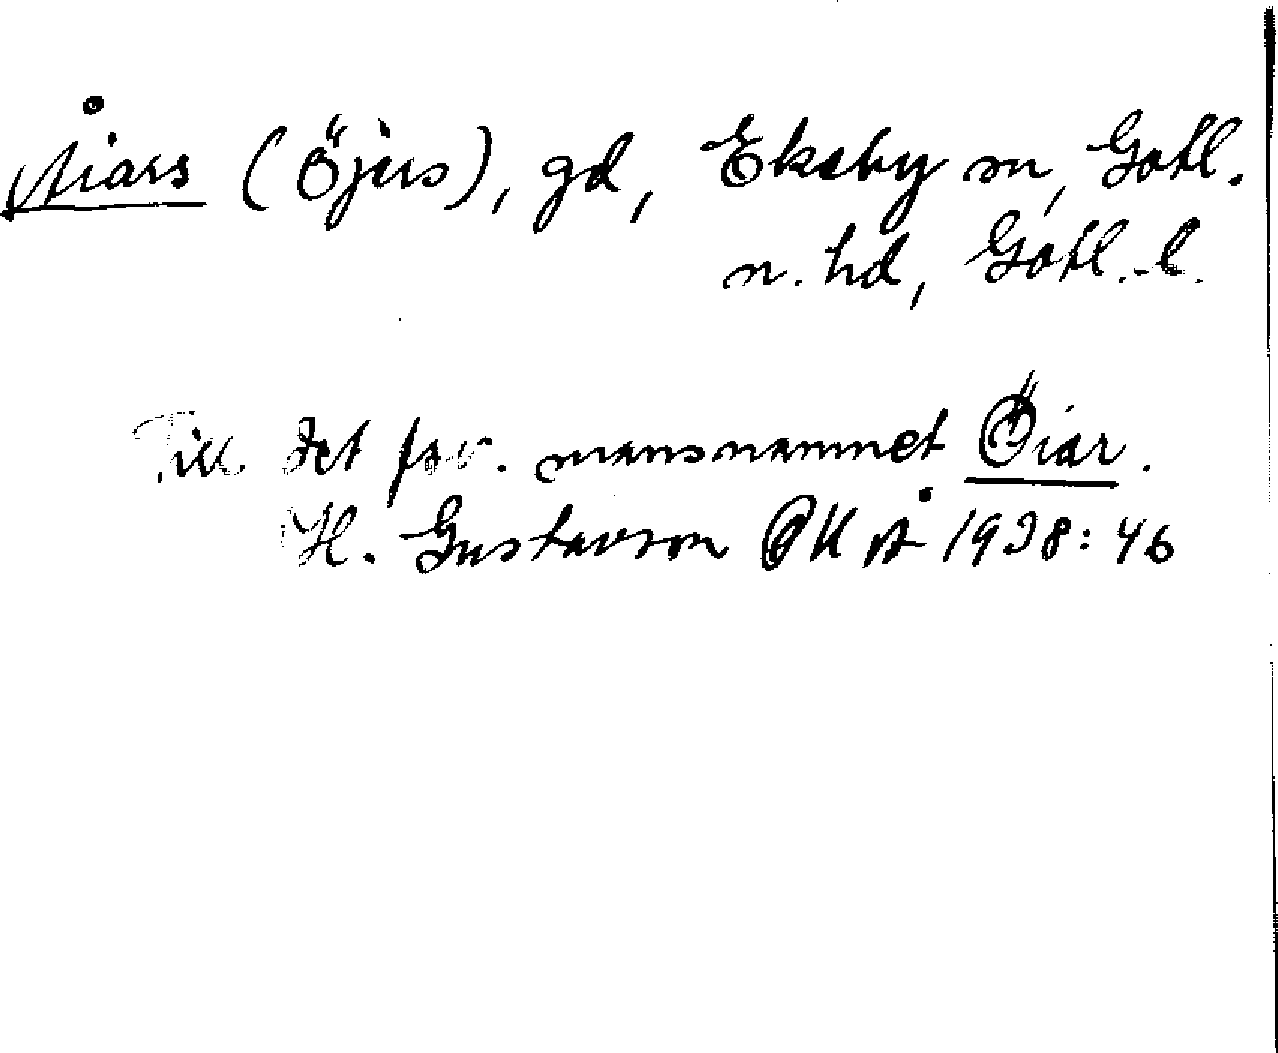 Åiars (Öjers), gd, Eksby sn, Gotl.
n. hd, Gotl.-l.
Till det fsv. mansnamnet Öiar.
H. Gustavson PK Å 1938:46